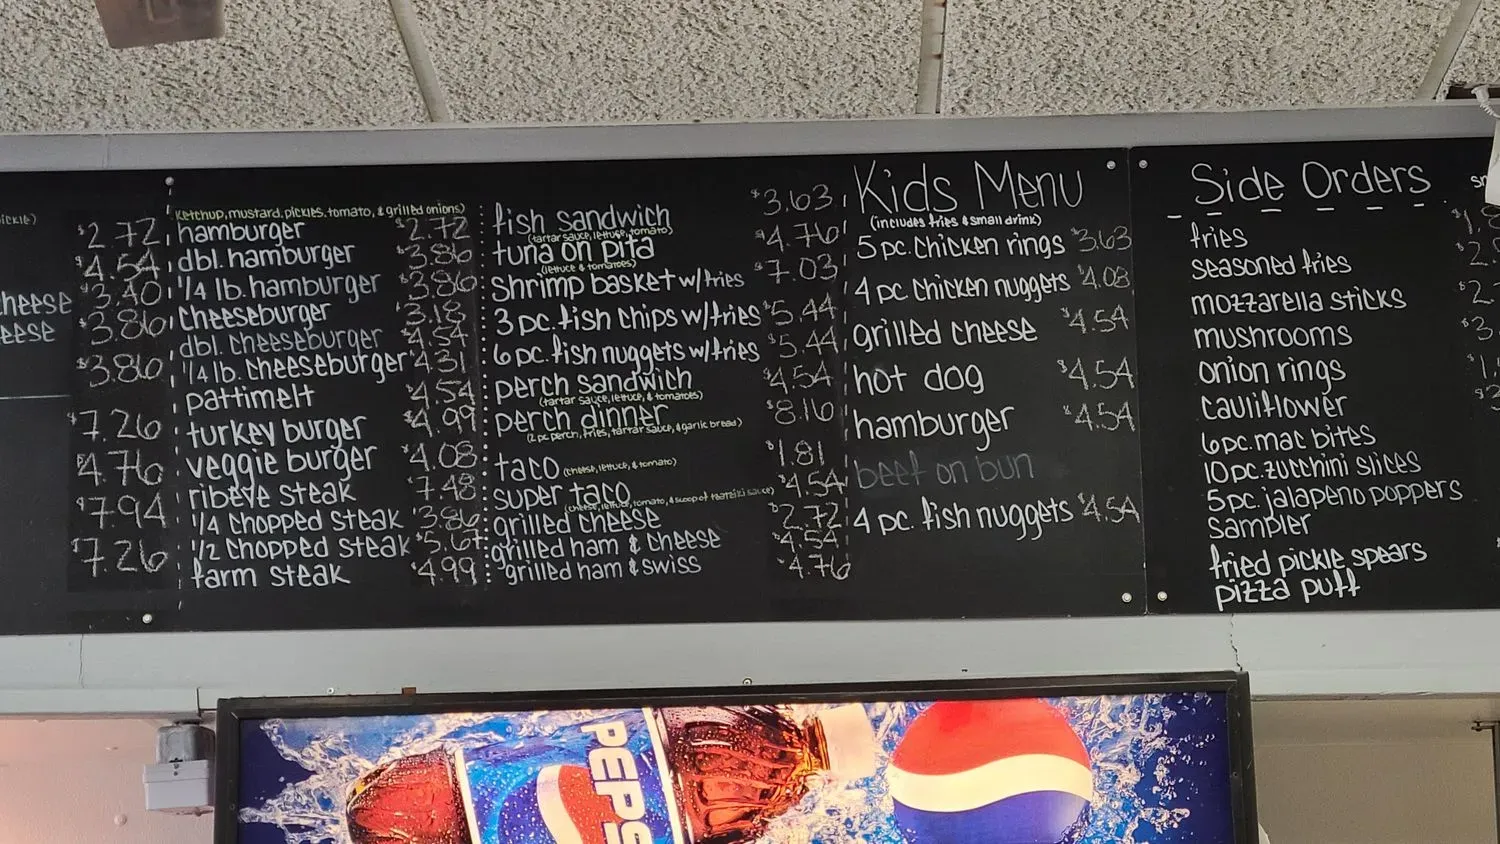 ickle)
$2.72
$4.54
cheese $3.40
eese $3.86
$3.86
$7.26
$4.76
$7.94
$7.26
(ketchup, mustard, pickles, tomato, & grilled onions)
hamburger $2.72
dbl. hamburger $3.86
1/4 lb. hamburger $3.86
cheeseburger $3.18
dbl. cheeseburger $4.54
1/4 lb. cheeseburger $4.31
pattimelt $4.54
turkey burger $4.99
veggie burger $4.08
ribeye steak $7.48
1/4 chopped steak $3.86
1/2 chopped steak $5.67
farm steak $4.99
fish sandwich $3.63
(tartar sauce, lettuce, tomato)
tuna on pita $4.76
(lettuce & tomatoes)
shrimp basket w/fries $7.03
3 pc. fish chips w/fries $5.44
6 pc. fish nuggets w/fries $5.44
perch sandwich $4.54
(tartar sauce, lettuce, & tomatoes)
perch dinner $8.16
(2 pc perch, fries, tartar sauce, & garlic bread)
taco (cheese, lettuce, & tomato) $1.81
super taco $4.54
(cheese, lettuce, tomato, & scoop of tzatziki sauce)
grilled cheese $2.72
grilled ham & cheese $4.54
grilled ham & swiss $4.76
Kids Menu
(includes fries & small drink)
5 pc. chicken rings $3.63
4 pc. chicken nuggets $4.08
grilled cheese $4.54
hot dog $4.54
hamburger $4.54
beef on bun
4 pc. fish nuggets $4.54
Side Orders
fries
seasoned fries
mozzarella sticks
mushrooms
onion rings
cauliflower
6pc. mac bites
10pc. zucchini slices
5pc. jalapeno poppers
sampler
fried pickle spears
pizza puff
PEPS